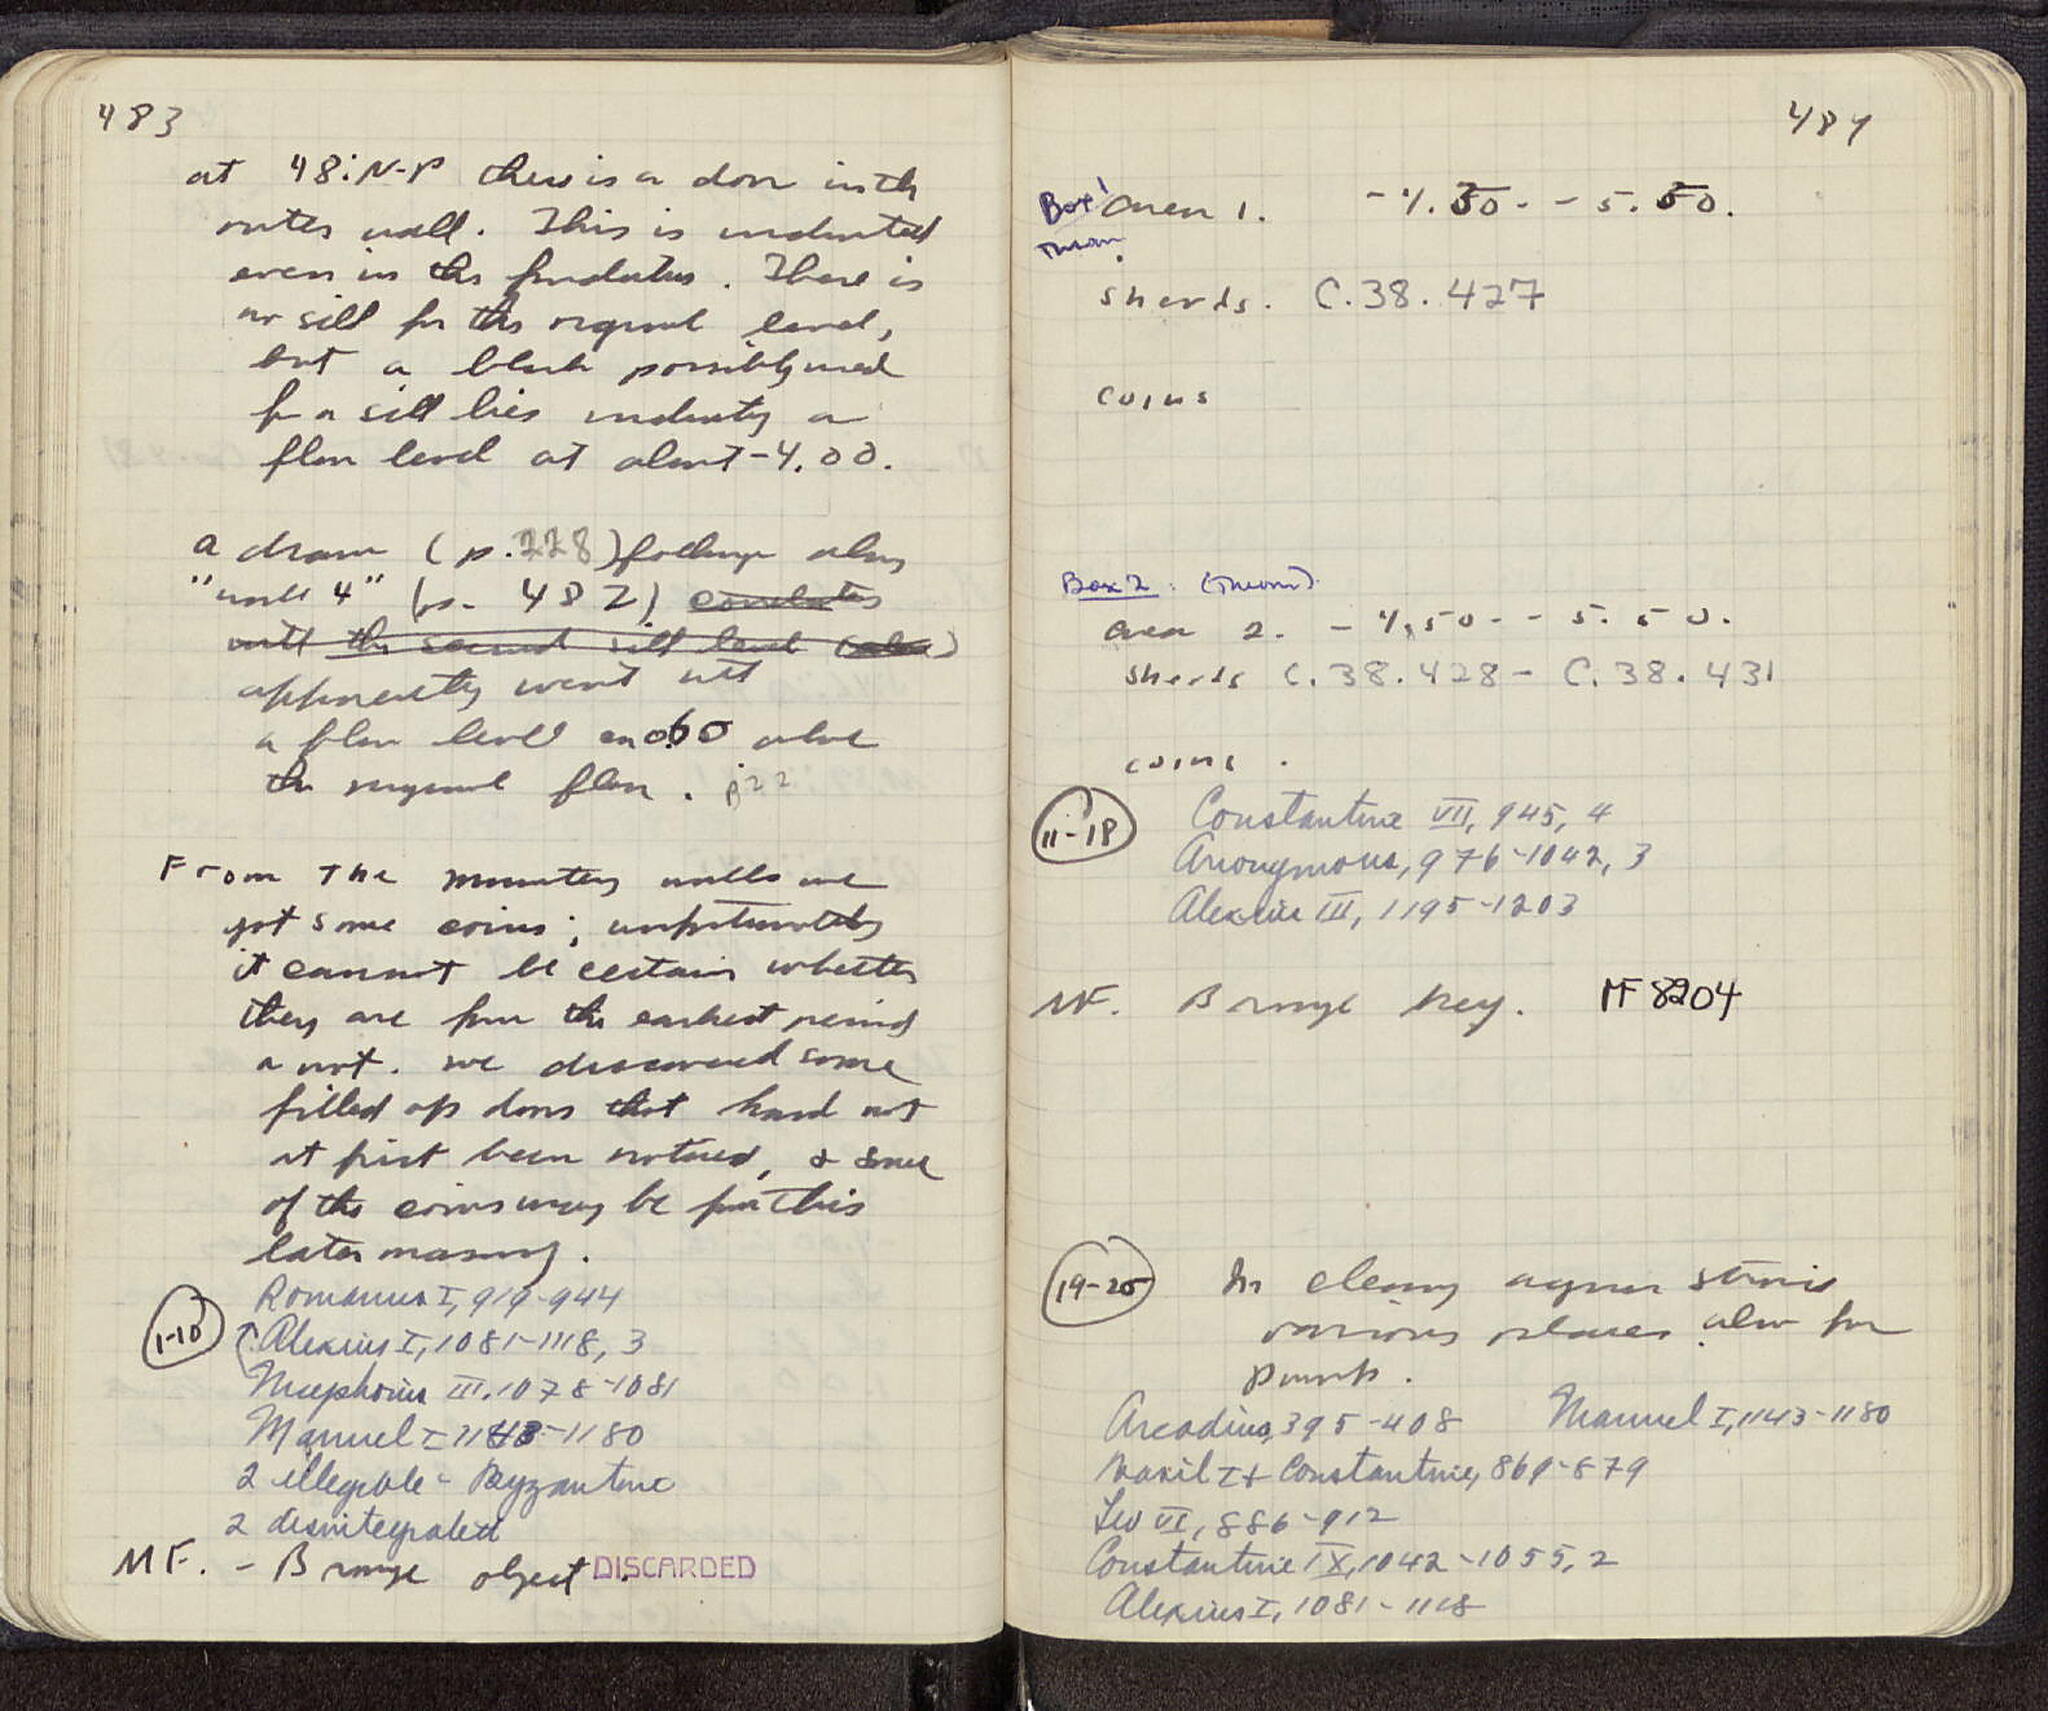 483
at 48:N-P there is a door in the
outer wall. This is indicated
even in the foundations. There is
no sill for the original level,
but a block possibly used
for a sill lies indicating a
floor level at about -4.00.
A drain (p. 228) following along
"wall 4" (p. 482) correlates
with the second sill level
apparently went with
a floor level ca 0.60 above
the original floor. p 22
From the monastery walls we
got some coins; unfortunately
it cannot be certain whether
they are from the earliest period
or not. We discovered some
filled up doors that had not
at first been noticed, & some
of the coins may be from this
later masonry.
Romanus I, 919-944
1-10 Alexius I, 1081-1118, 3
Nicephorus III, 1078-1081
Manuel I 1143-1180
2 illegible - Byzantine
2 disintegrated
MF. - Bronze object DISCARDED
484
Box 1 Area 1. -4.50 - -5.50.
sherds. C.38.427
coins
Box 2.
Area 2. -4.50 - -5.50.
sherds C.38.428 - C.38.431
coins.
11-18 Constantine VII, 945, 4
Anonymous, 976-1042, 3
Alexius III, 1195-1203
MF. Bronze key. MF 8204
19-25 In cleaning again
various places also for
Arcadius, 395-408 Manuel I, 1143-1180
Basil I + Constantine, 869-879
Leo VI, 886-912
Constantine IX, 1042-1055, 2
Alexius I, 1081-1118